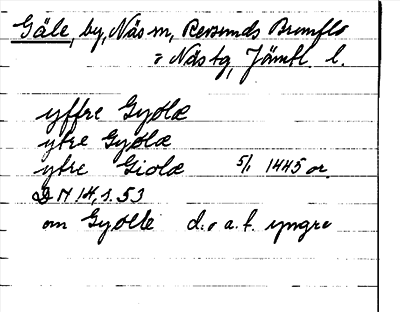 Gäle, by, Näs sn, Revsunds Brunflo
o Näs tg, Jämtl. l.
yffre Gyólæ
ytre Gyólæ
ytre Giolæ 5/1 1445 or.
DN 14, s. 53
om Gyólle d. o a. f. yngre